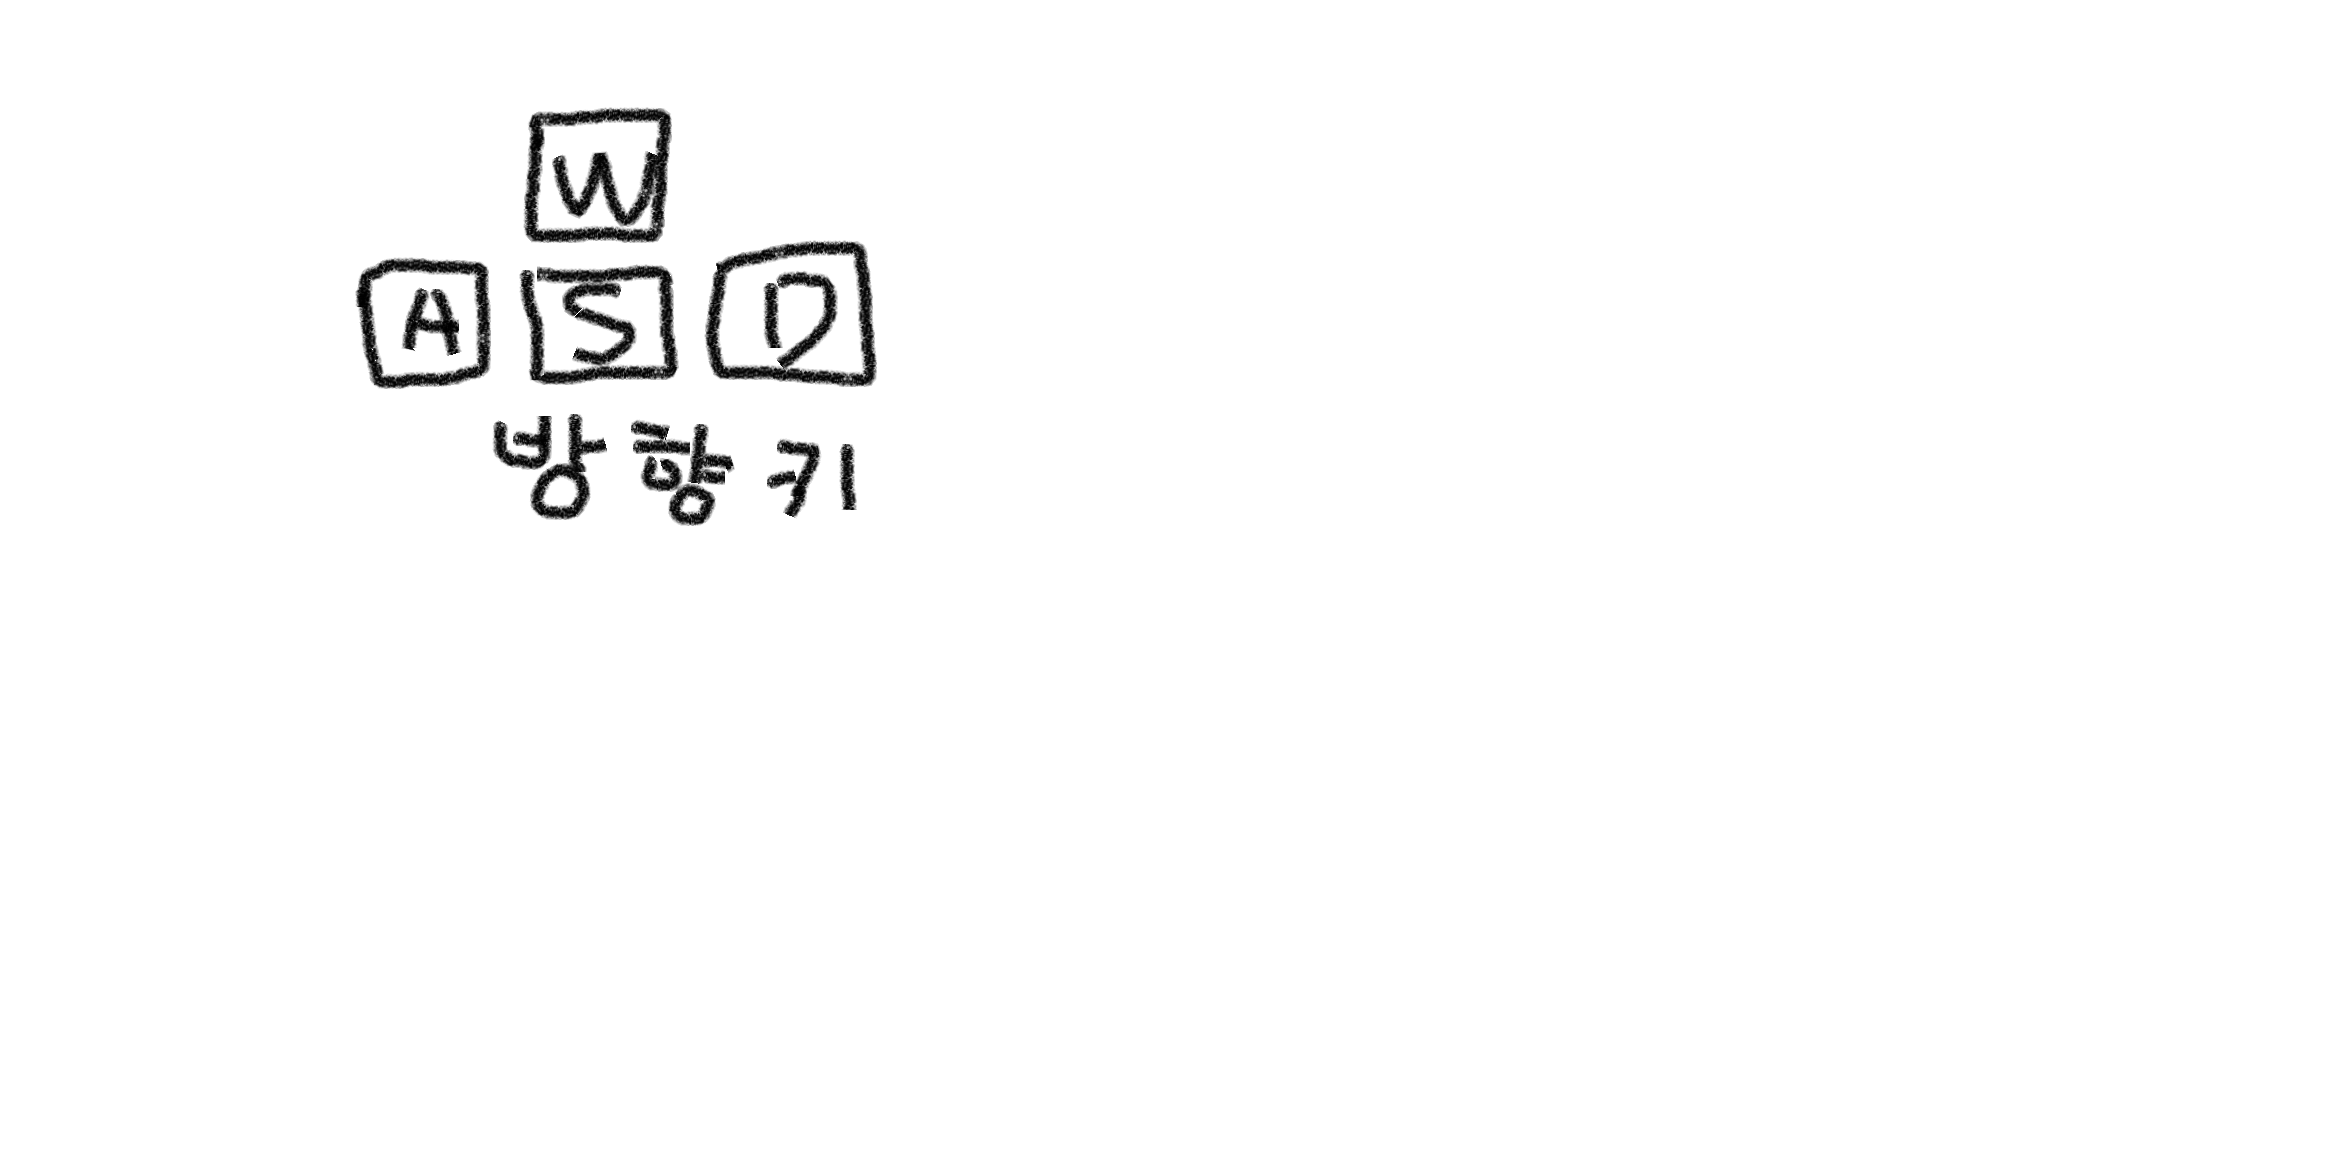 W
A S D
방향키